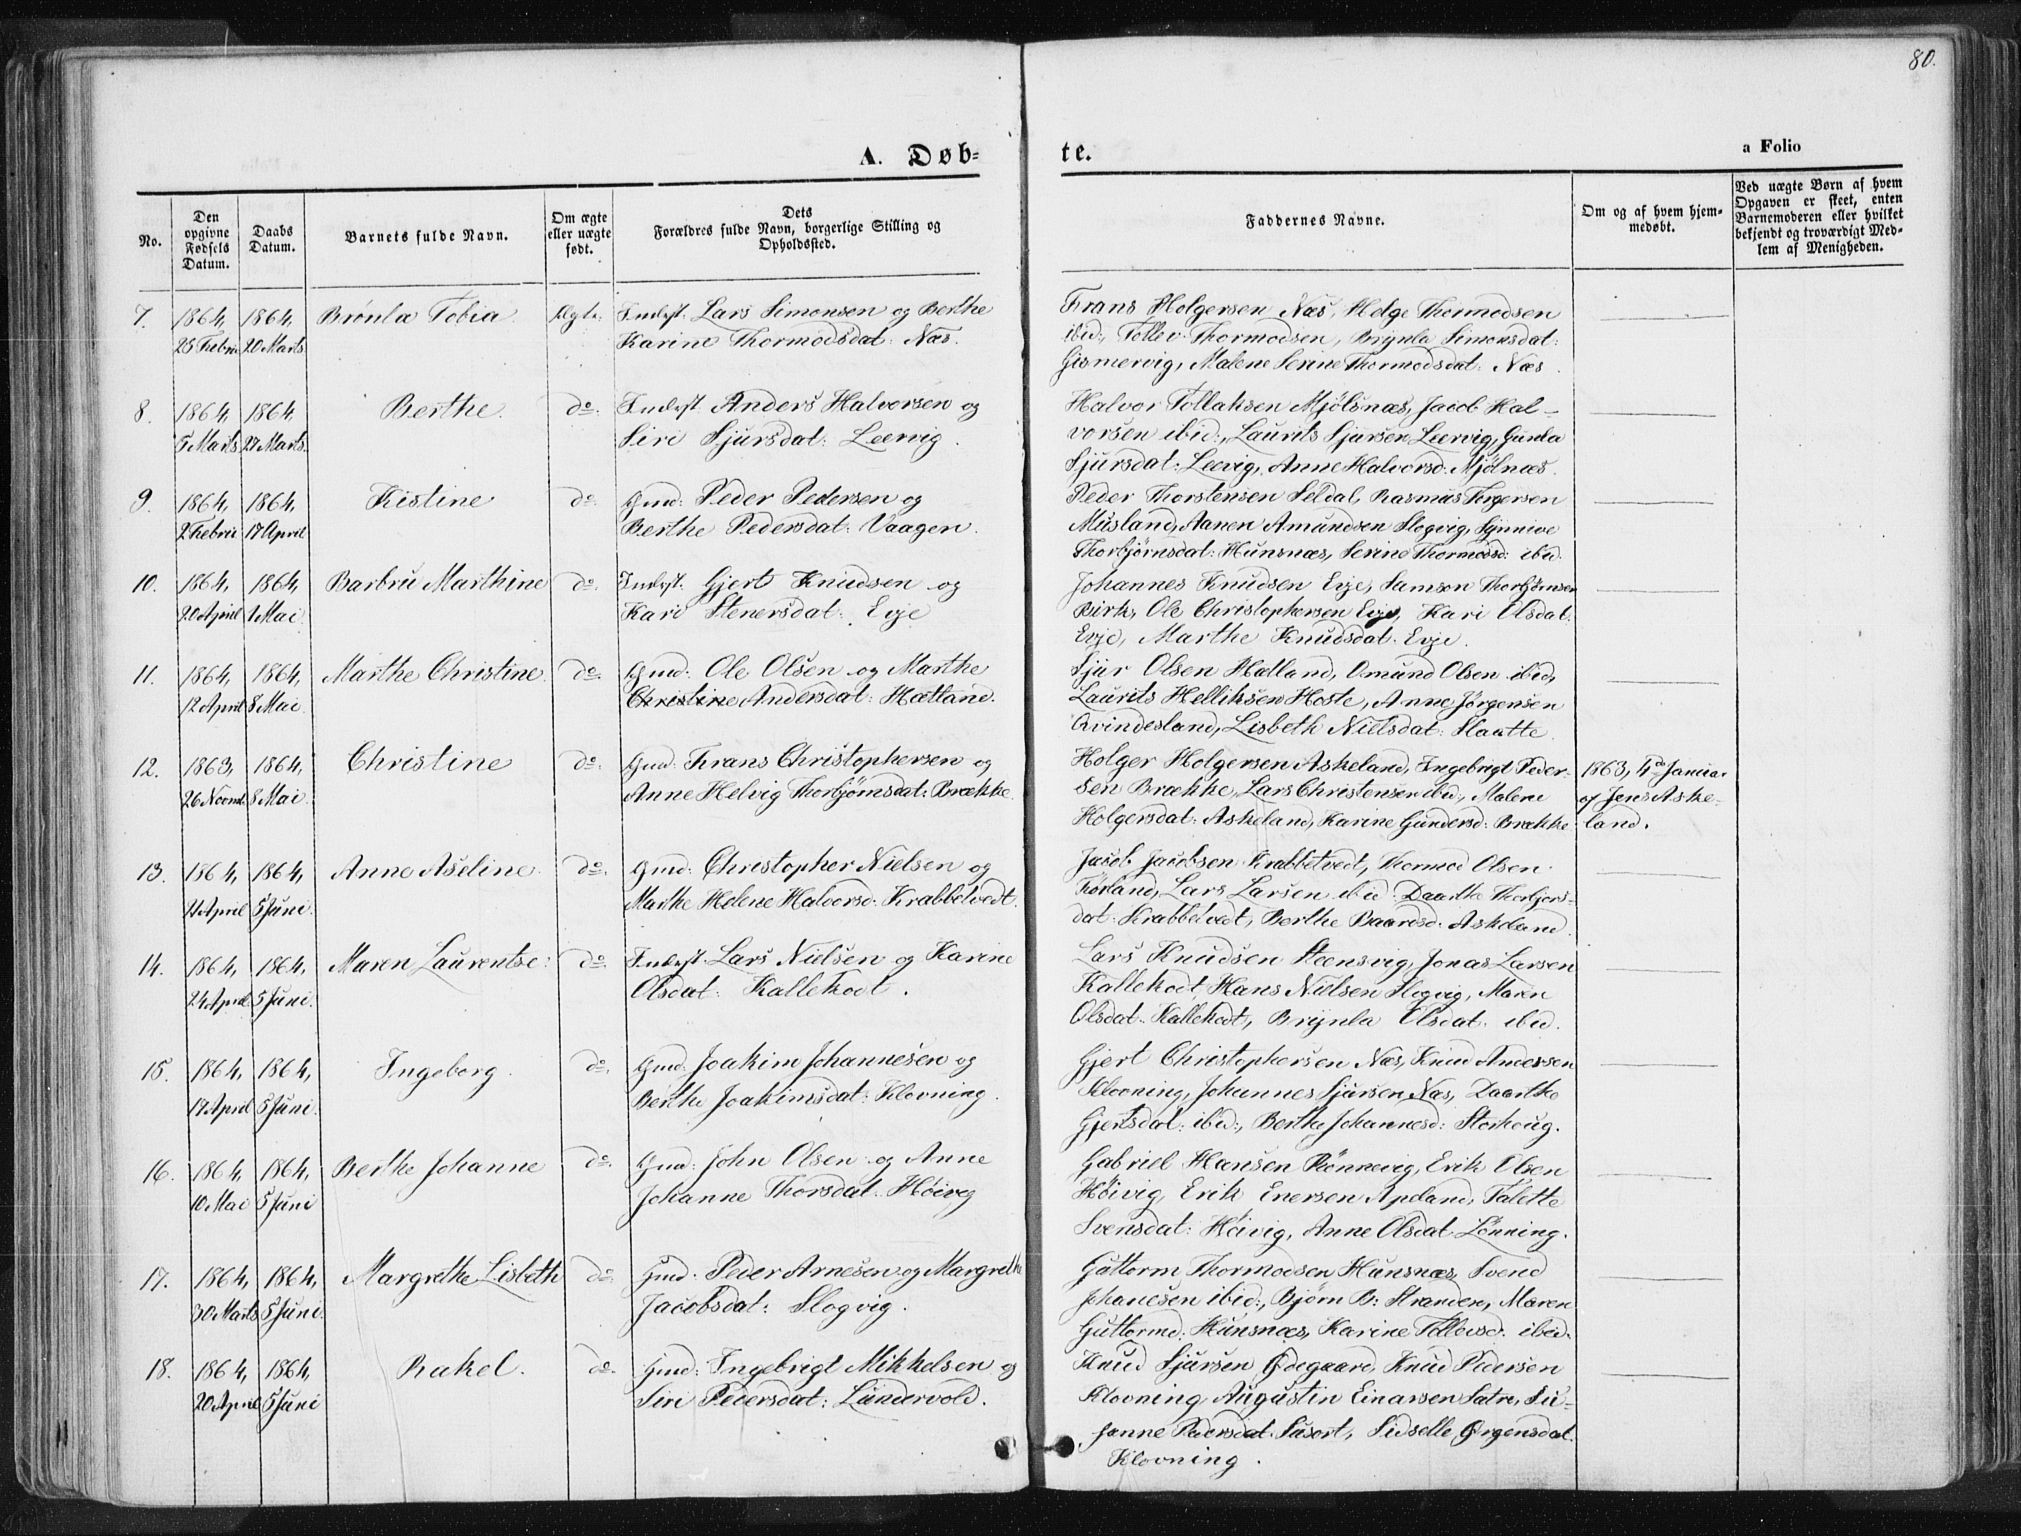 80.
A. Døb-
te.
a Folio
No.
Den opgivne Fødsels Datum.
Daabs Datum.
Barnets fulde Navn.
Om ægte eller uægte født.
Dets Forældres fulde Navn, borgerlige Stilling og Opholdssted.
Faddernes Navne.
Om og af hvem hjem-
medøbt.
Ved uægte Børn af hvem
Opgaven er skeet, enten
Barnemoderen eller hvilket
bekjendt og troværdigt Med-
lem af Menigheden.
7. 1864, 1864, Brønla Tobia. Ægte. Inderst: Lars Simonsen og Berthe
25 Februr 20 Marts. Karine Thormodsdat: Næs.
Frans Holgersen Næs, Helge Thormodsen
ibid., Tollev Thormodsen, Brynla Simonsdat:
Gismervig, Malene Serine Thormodsdat: Næs.
8. 1864, 1864, Berthe. do. Inderst. Anders Halvorsen og
5 Marts 27 Marts. Siri Sjursdat: Leervig.
Halvor Tollaksen Mjølsnæs, Jacob Hal-
vorsen ibid., Laurits Sjursen Leervig, Gunla
Sjursdat: Leevig, Anne Halvorsd: Mjølnæs.
9. 1864, 1864, Kistine do. Gmd: Peder Pedersen og
2 Februr 17 April Berthe Pedersdat: Vaagen.
Peder Thorstensen Seldal, Rasmus Torgersen
Musland, Aanen Amundsen Slogvig, Synnive
Thorbjørnsdat: Hunsnæs, Serine Thormodsd: ibid.
10. 1864, 1864, Barbru Marthine do. Inderst: Gjert Knudsen og
20 April 1 Mai Kari Stenersdat: Evje
Johannes Knudsen Evje, Samson Thorbjørnsen
Birk, Ole Christophersen Evje, Kari Olsdat:
Evje, Marthe Knudsdat: Evje.
11. 1864, 1864, Marthe Christine. do. Gmd: Ole Olsen og Marthe
12 April 8 Mai. Christine Andersdat: Hætland.
Sjur Olsen Hætland, Omund Olsen ibid,
Laurits Helliksen Hoste, Anne Jørgensen
Qvindesland, Lisbeth Nielsdat: Slaatte.
12. 1863, 1864, Christine do. Gmd: Frans Christophersen og
26 Novmb 8 Mai. Anne Helvig Thorbjørnsdat: Brække.
Holger Holgersen Askeland, Ingebrigt Peder-
sen Brække, Lars Christensen ibid., Malene
Holgersdat: Askeland, Karine Gundersd: Brække.
1863, 4de Januar
af Jens Aske-
land.
13. 1864, 1864, Anne Aseline. do. Gmd: Christopher Nielsen og
21 April 5 Juni. Marthe Helene Halvorsd: Krabbetvedt.
Jacob Jacobsen Krabbetvedt, Thormod Olsen
Førland, Lars Larsen ibid. Daarthe Thorbjørs-
dat: Krabbetvedt, Berthe Baardsd: Askeland.
14. 1864, 1864, Maren Laurentse: do. Inderst. Lars Nielsen og Karine
24 April 5 Juni. Olsdat: Kallekodt.
Lars Knudsen Steensvig, Jonas Larsen
Kallekodt, Hans Nielsen Slogvig, Maren
Olsdat: Kallekodt, Brynla Olsdat: ibid.
15. 1864, 1864, Ingeborg. do. Gmd. Joakim Johannesen og
17 April 5 Juni. Berthe Joakimsdat: Klovning.
Gjert Christophersen Næs, Knud Andersen
Klovning, Johannes Sjursen Næs, Daarthe
Gjertsdat: ibid., Berthe Johannesd: Storhoug.
16. 1864, 1864, Berthe Johanne do. Gmd: John Olsen og Anne
10 Mai 5 Juni Johanne Thorsdat: Høivig
Gabriel Hansen Rønnevig, Erik Olsen
Høivig, Erik Enersen Apeland, Talette
Svensdat: Høivig, Anne Olsdat Lønning.
17. 1864, 1864, Margrethe Lisbeth do. Gmd: Peder Arnesen og Margrethe
30 Marts 5 Juni. Jacobsdat: Slogvig.
Guttorm Thormodsen Hunsnæs, Svend
Johanesen ibid:, Bjørn B: Stranden, Maren
Guttormd: Hunsnæs, Karine Tollevsd: ibid.
18. 1864, 1864, Rakel. do. Gmd: Ingebrigt Mikkelsen og
20 April 5 Juni Siri Pedersdat: Lundervold.
Knud Sjursen Ødegaard, Knud Pedersen
Klovning, Augustin Einarsen Satre, Su-
sanne Pedersdat: Susort, Sidselle Ørgensdat.
Klovning.